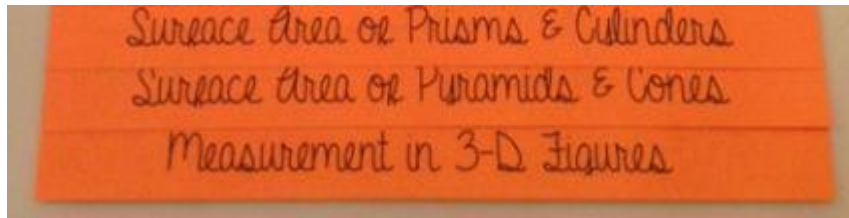 Surface Area of Prisms & Cylinders
Surface Area of Pyramids & Cones
Measurement in 3-D Figures